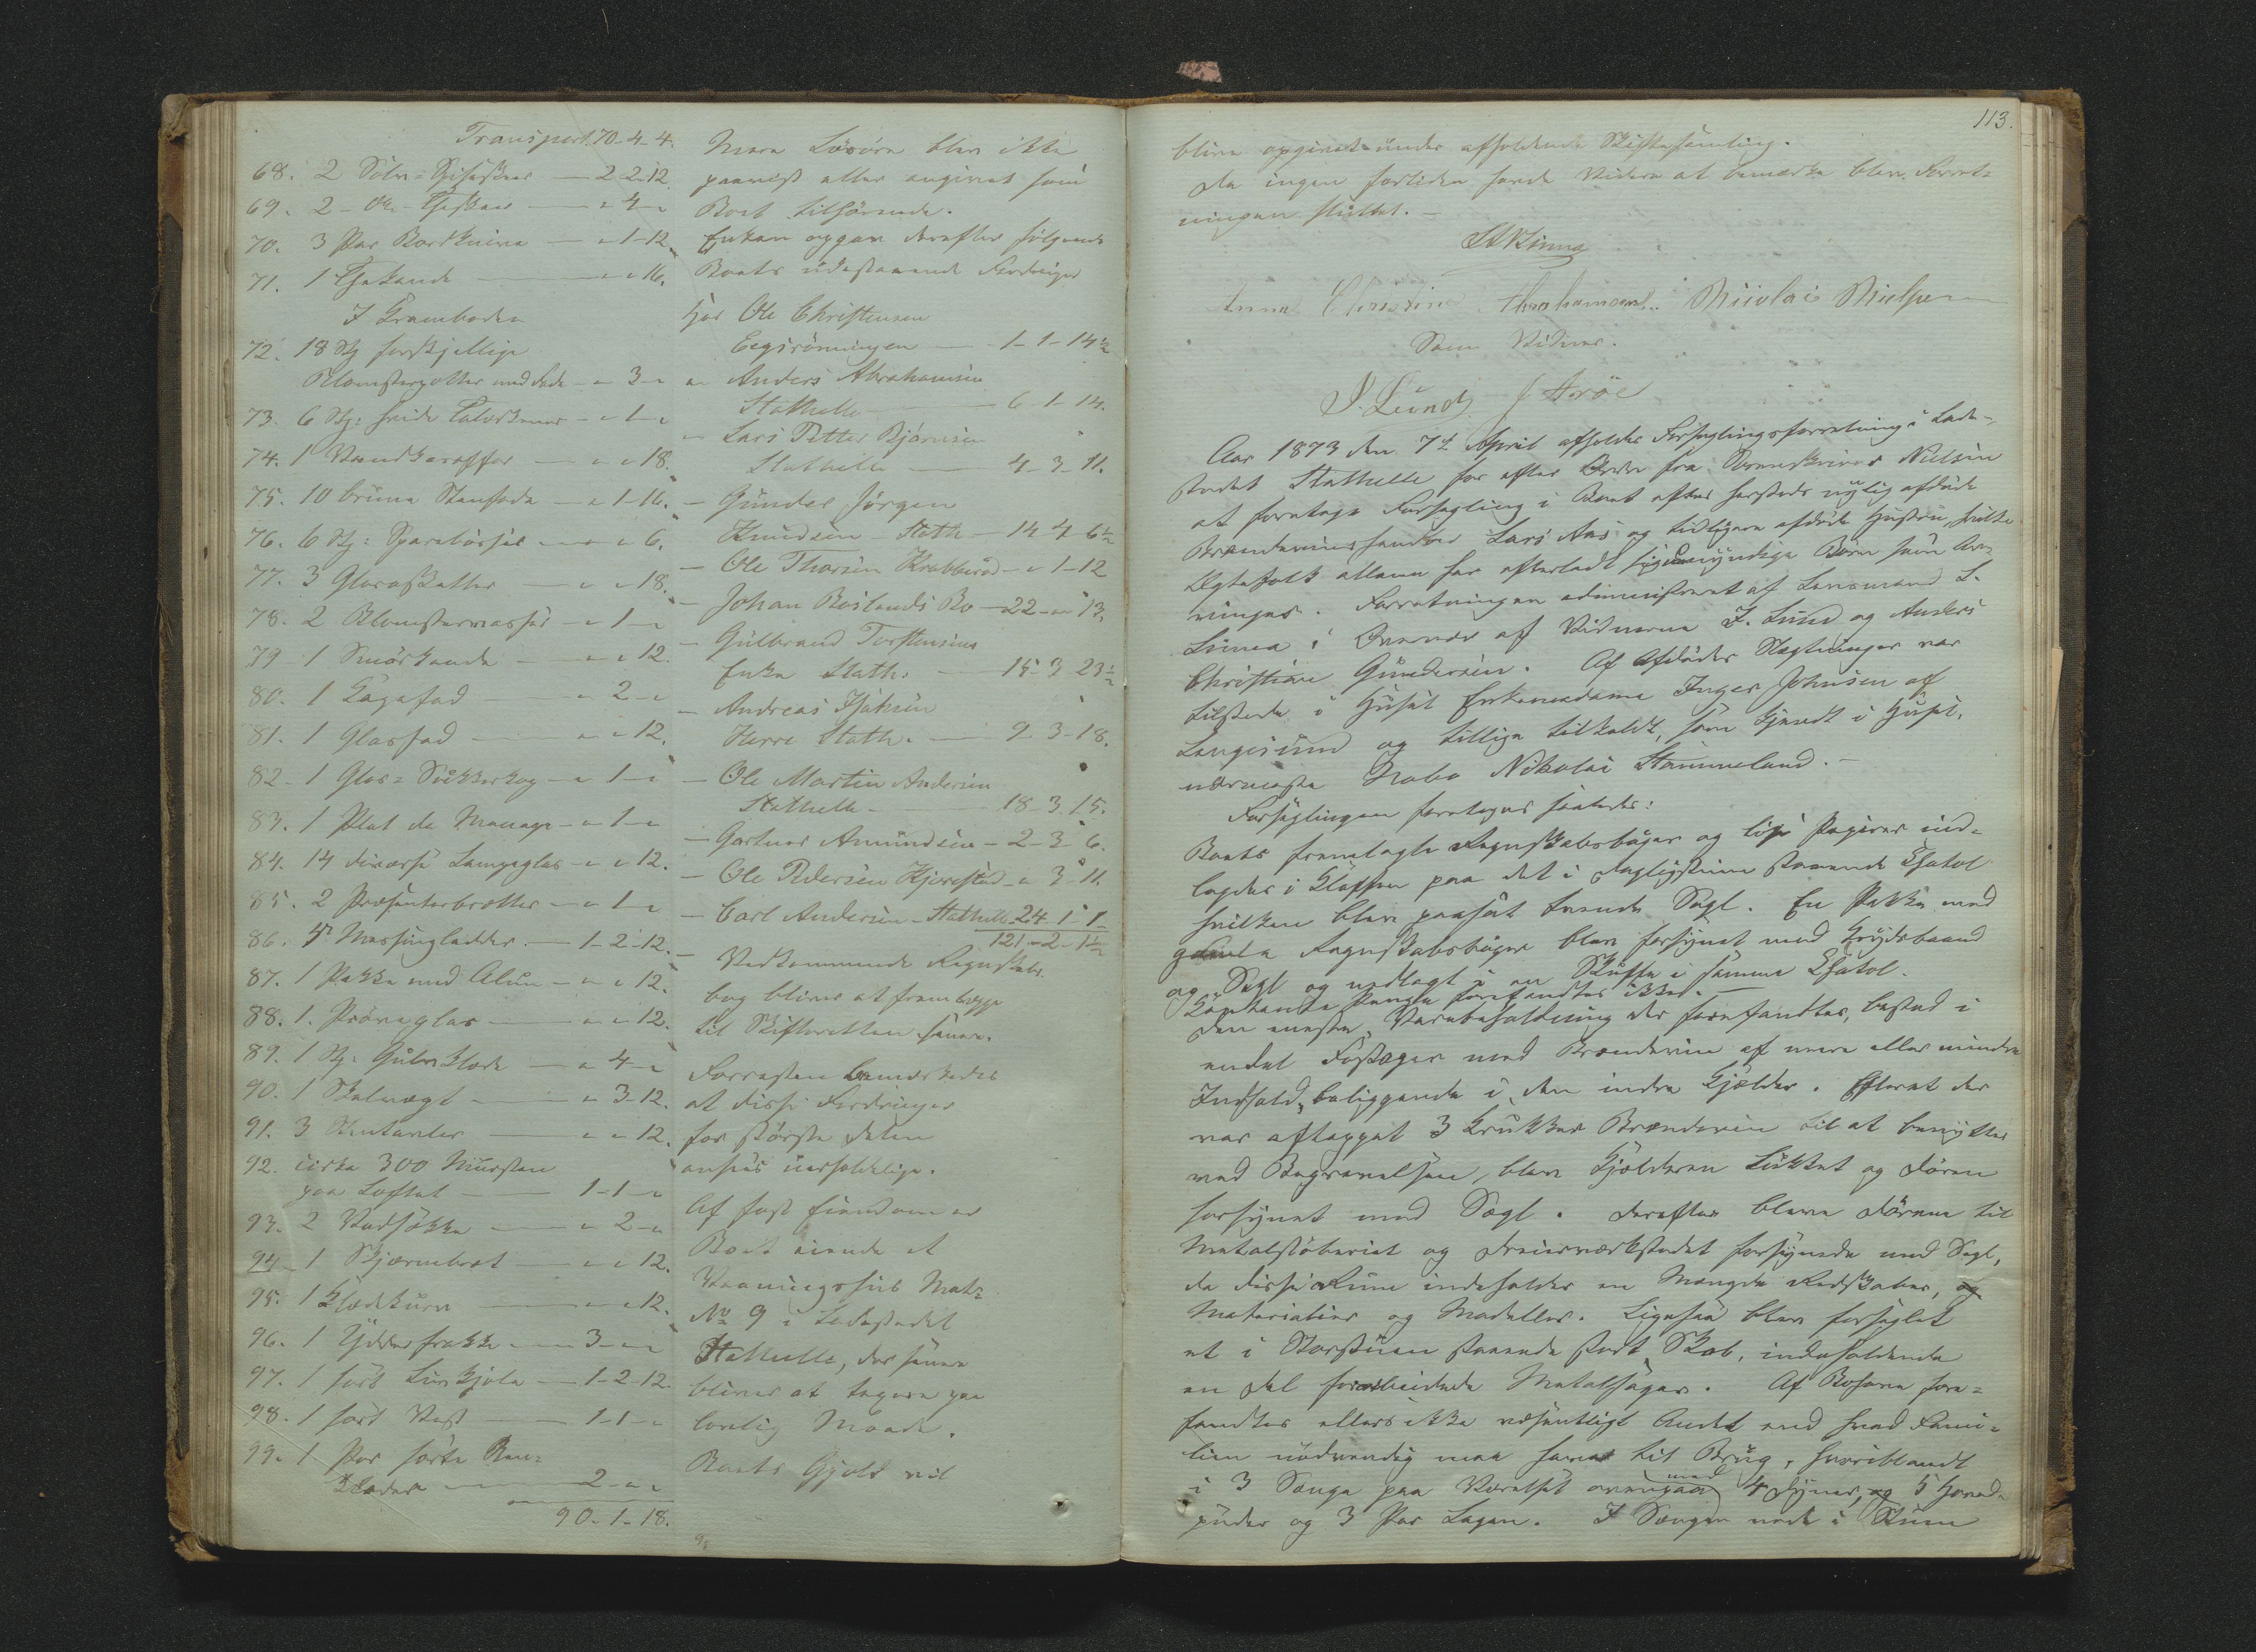 Transport 70-4-4.
68. 2 Sölv-Spiseskeer — 2-2-12.
69. 2 - do - Theskeer — " 4 - "
70. 3 Par Bordknive — " 1-12.
71. 1 Thekande — " " 16.
I Kramboden
72. 18 Stk forskjellige
Blomsterpotter med Fade - " 3 - "
73. 6 Stk: hvide Talerkener - " 1 - "
74. 1 Vandkaraffer — " " 18.
75. 10 brune Stenfade — " 1-16.
76. 6 Stk: Sparebösser — " " 6.
77. 3 Glasaskatter — " " 18.
78. 2 Blomstervasser — " 1 - "
79. 1 Smörkande — " " 12.
80. 1 Kagefad — " 2 - "
81. 1 Glasfad — " " 12.
82. 1 Glas-Sukkerkop — " 1 - "
83. 1 Plat de Menage — " 1 - "
84. 14 diverse Lampeglas — " " 12.
85. 2 Præsenterbrætter — " 1 - "
86. 4 Messingladder — 1-2-12.
87. 1 Pakke med Alun — " " 12.
88. 1 Pröveglas — " " 12.
89. 1 Stk: Gulvklæde — " 4 - "
90. 1 Skalvægt — " 3-12.
91. 3 — " " 12.
92. cirka 300 Mursten
paa Loftet — 1-1 - "
93. 2 Vadsække — " 2 - "
94. 1 Skjærmbret — " " 12.
95. 1 Klædekurv — " " 12.
96. 1 Yderfrakke — 3 - " "
97. 1 sort Livkjole — 1-2-12.
98. 1 sort Vest — 1-1 - "
99. 1 Par sorte Ben-
klæder — 2 - " "
90-1-18.
Mere Lösöre blev ikke
paavist eller angivet som
Boet tilhörende.
Enken opgav derefter fölgende
Boets udestaaende Fordringer
hos Ole Christensen
Eegsröningen — 1-1-14½
" Anders Abrahamsen
Stathelle — 6-1-14.
- Lars Petter Björnsen
Stathelle — 4-3-11.
- Gunder Jörgen
Knudsen Stath — 14 4 6½
- Ole Thorsen Krabberöd - " 1-12
- Johan Roslands Bo — 22 - " 13.
- Gulbrand Torstensens
Enke Stath: — 15-3 23½
- Andreas Isaksen
Herre Stath. — 9-3-18.
- Ole Martin Andersen
Stathelle — 18-3-15.
- Gartner Amundsen — 2-3-6.
- Ole Pedersen Kjerestad - " 3-11.
- Carl Andersen - Stathelle 24-1-1-
121-2-1½
Vedkommende Regnskabs-
bog bliver at fremlægge
til Skifteretten senere.
Forresten bemærkedes
at disse Fordringer
for störste Delen
ansees uerholdelige.
Af fast Eiendom er
Boet eiende et
Vaaningshus Matr
No 9 i Ladestedet
Stathelle, der senere
bliver at taxere paa
lovlig Maade.
Boets Gjæld vil
113.
blive opgivet under afholdende Skiftesamling.
Da ingen fortiden havde Videre at bemærke blev Forret-
ningen sluttet. —
Anna Christine Abrahamsen. Nicolai Nielsen
Som Vidner.
I. Lund J Aröe
Aar 1873 den 7de April afholdes Forseglingsforretning i Lade-
stedet Stathelle for efter Ordre fra Sorenskriver Nielsen
at foretage Forsegling i Boet efter hersteds nylig afdöde
Brændevinshandler Lars Aas og tidligere afdöde Hustru, hvilke
Ægtefolk alene har efterladt sig umyndige Börn som Ar-
vinger. Forretningen administreret af Lensmand S.
Linnea i Overvær af Vidnerne I. Lund og Anders
Christian Gundersen. Af Afdödes Slægtninger var
tilstede i Huset Enkemadame Inger Johnsen af
Langesund og tillige tilkaldt, som kjendt i Huset,
nærmeste Nabo Nikolai Stammeland. —
Forseglingen foretoges saaledes:
Boets fremlagte Regnskabsböger og löse Papirer ind-
lagdes i Klaffen paa det i Dagligstuen staaende Chatol
hvilken blev paasat tvende Segl. En Pakke med
gamle Regnskabsböger blev forsynet med Krydsbaand
og Segl og nedlagt i en Skuffe i samme Chatol.
Kontante Penge forefandtes ikke. —
Den eneste Varebeholdning der forefandtes, bestod i
endel Fustager med Brændevin af mere eller mindre
Indhold, beliggende i den indre Kjælder. Efterat der
var aftappet 3 Krukker Brændevin til at benyttes
ved Begravelsen, blev Kjælderen lukket og Dören
forsynet med Segl. Derefter bleve Dörene til
Metalstöberiet og Dreierværkstedet forsynede med Segl,
da disse Rum indeholder en Mængde Redskaber, og
Materialier og Modeller. Ligesaa blev forseglet
et i Storstuen staaende stort Skab, indeholdende
en Del forarbeidede Metalsager. Af Bohave fore-
fandtes ellers ikke væsentligt Andet end hvad Fami-
lien nödvendig maa have til Brug, hvoriblandt
i 3 Senge paa Værelset ovenpaa med 4 Dyner, og 5 Hoved-
puder og 3 Par Lagen. I Sengen nede i Stuen